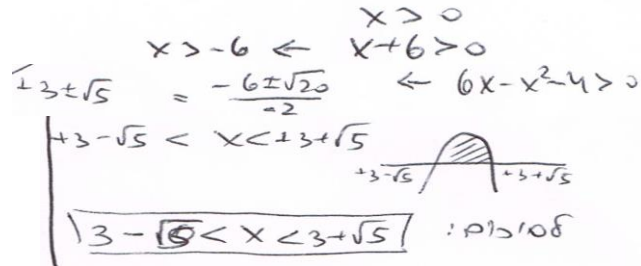 x > 0
x > -6 ← x+6 > 0
+3 ± √5 = (-6 ± √20)/-2 ← 6x - x² - 4 > 0
+3 - √5 < x < +3 + √5
+3-√5 +3+√5
3 - √5 < x < 3 + √5 לסיכום: